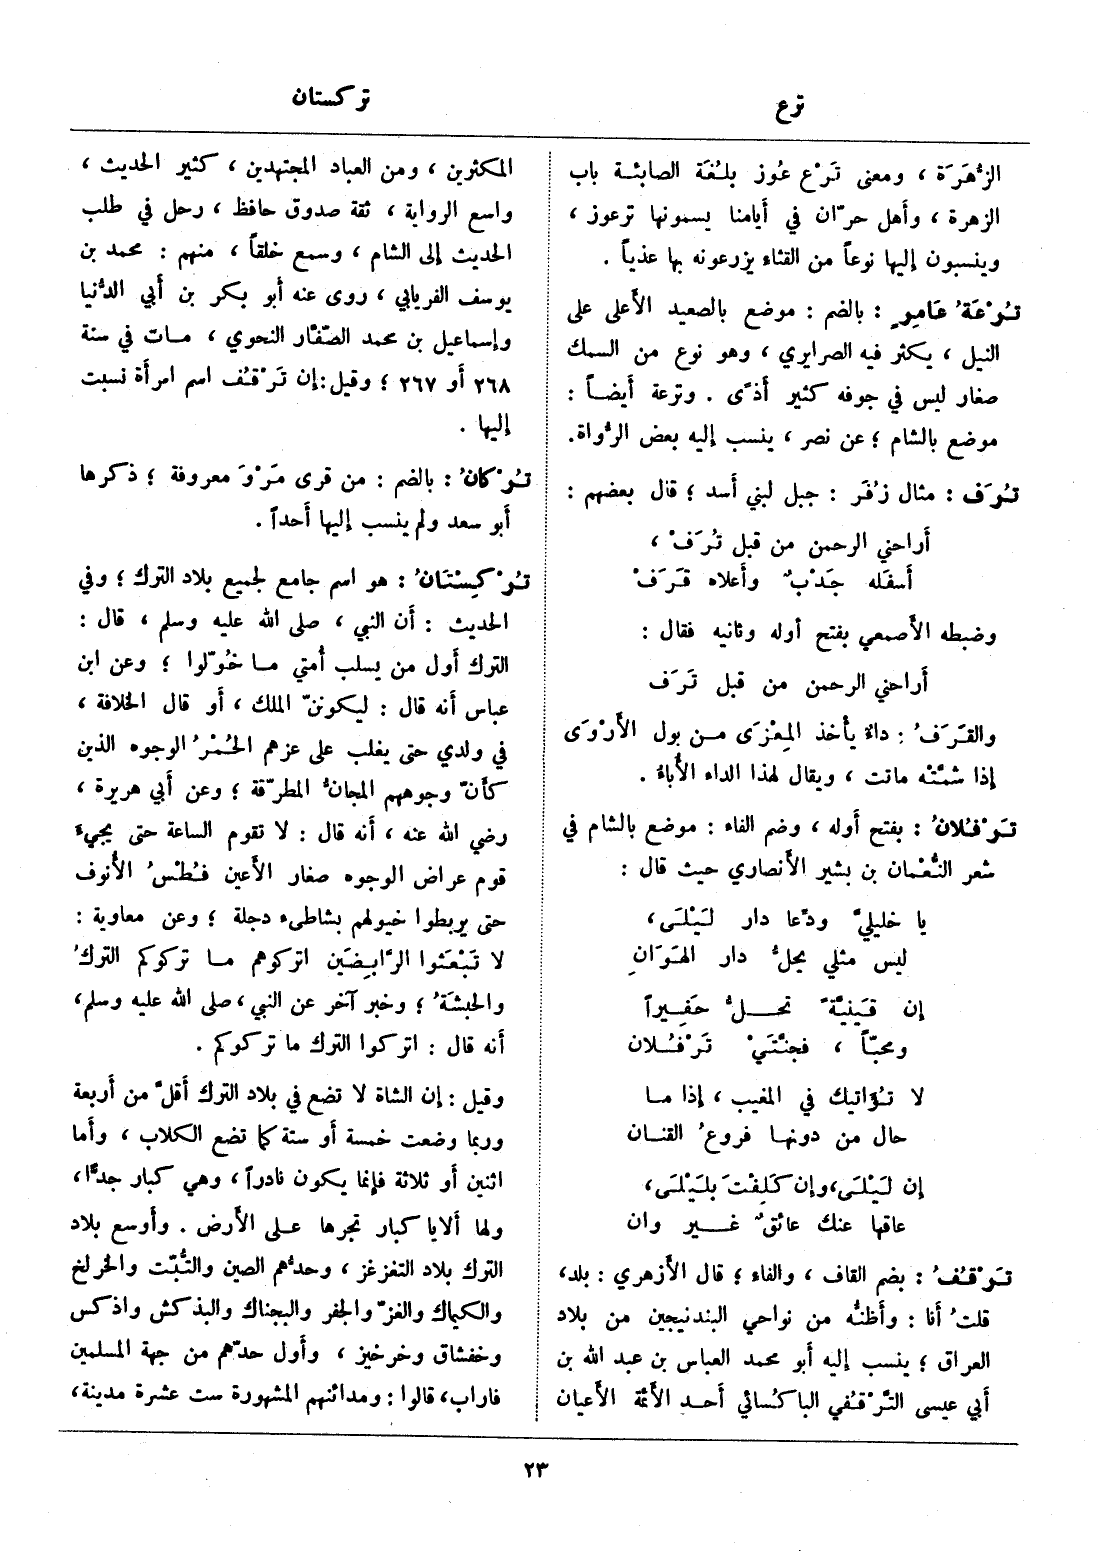 ترع
تركستان
الزُّهَرَة ، ومعنى تَرْع عُوز بلُغَة الصابئة باب
الزهرة ، وأهل حرّان في أيامنا يسمونها ترعوز ،
وينسبون إليها نوعاً من القثاء يزرعونه بها عذياً .
تُرْعَةُ عامِرٍ : بالضم : موضع بالصعيد الأعلى على
النيل ، يكثر فيه الصرايري ، وهو نوع من السمك
صغار ليس في جوفه كثير أذًى . وترعة أيضاً :
موضع بالشام ؛ عن نصر ، ينسب إليه بعض الرُّواة.
تُرَف : مثال زُفَر : جبل لبني أسد ؛ قال بعضهم :
أراحني الرحمن من قبل تُرَفْ ،
أسفله جَدْبٌ وأعلاه قَرَفْ
وضبطه الأصمعي بفتح أوله وثانيه فقال :
أراحني الرحمن من قبل تَرَف
والقَرَفُ : داء يأخذ المِعْزَى من بول الأَرْوَى
إذا شمَّتْه ماتت ، ويقال لهذا الداء الأُباءُ .
تَرْفُلانُ : بفتح أوله ، وضم الفاء : موضع بالشام في
شعر النُّعْمان بن بشير الأنصاري حيث قال :
يا خليليَّ ودِّعا دار لَيْلَى،
ليس مثلي يحلُّ دار الهَوَانِ
إن قَينِيَّةً تحلُّ حَفِيراً
ومحبّاً ، فجنَّتَيْ تَرْفُلان
لا تُؤاتيك في المغيب ، إذا ما
حال من دونها فروعُ القنان
إن لَيْلَى،وإن كَلِفْتَ بلَيْلَى،
عاقها عنك عائقٌ غير وان
تَرْقُفُ : بضم القاف ، والفاء ؛ قال الأزهري : بلد،
قلتُ أنا : وأظنُّه من نواحي البندنيجين من بلاد
العراق ؛ ينسب إليه أبو محمد العباس بن عبد الله بن
أبي عيسى التَّرْقُفي الباكُسائي أحد الأئمة الأعيان
المكثرين ، ومن العباد المجتهدين ، كثير الحديث ،
واسع الرواية ، ثقة صدوق حافظ ، رحل في طلب
الحديث إلى الشام ، وسمع خلقاً ، منهم : محمد بن
يوسف الفريابي ، روى عنه أبو بكر بن أبي الدُّنيا
وإسماعيل بن محمد الصّفّار النحوي ، مات في سنة
٢٦٨ أو ٢٦٧ ؛ وقيل:إن تَرْقُف اسم امرأة نسبت
إليها .
تُرْكانُ : بالضم : من قرى مَرْوَ معروفة ؛ ذكرها
أبو سعد ولم ينسب إليها أحداً .
تُرْكِسْتَانُ : هو اسم جامع لجميع بلاد الترك ؛ وفي
الحديث : أن النبي ، صلى الله عليه وسلم ، قال :
الترك أول من يسلب أُمتي ما خُوّلوا ؛ وعن ابن
عباس أنه قال : ليكوننّ الملك ، أو قال الخلافة ،
في ولدي حتى يغلب على عزهم الحُمْرُ الوجوه الذين
كأنّ وجوههم المجانُّ المطرّقة ؛ وعن أبي هريرة ،
رضي الله عنه ، أنه قال : لا تقوم الساعة حتى يجيءَ
قوم عراض الوجوه صغار الأعين فُطْسُ الأنوف
حتى يربطوا خيولهم بشاطىء دجلة ؛ وعن معاوية :
لا تَبْعَثوا الرَّابِضَين اتركوهم ما تركوكم التركُ
والحبشةُ ؛ وخبر آخر عن النبي ،صلى الله عليه وسلم،
أنه قال : اتركوا الترك ما تركوكم .
وقيل : إن الشاة لا تضع في بلاد الترك أقلَّ من أربعة
وربما وضعت خمسة أو ستة كما تضع الكلاب ، وأما
اثنين أو ثلاثة فإنما يكون نادراً ، وهي كبار جدًّا،
ولها ألايا كبار تجرها على الأرض . وأوسع بلاد
الترك بلاد التغزغز ، وحدُّهم الصين والتُّبّت والخرلخ
والكيماك والغزّ والجفر والبجناك والبذكش واذكس
وخفشاق وخرخيز ، وأول حدّهم من جهة المسلمين
فاراب، قالوا : ومدائنهم المشهورة ست عشرة مدينة،
٢٣